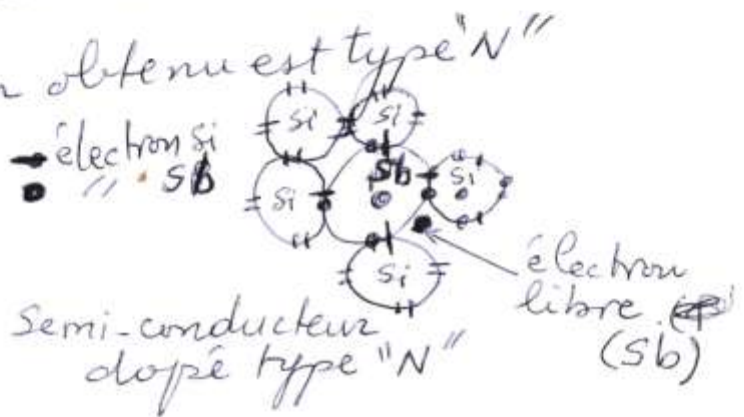 obtenu est type "N"
électron Si
" Sb
Si
Si
Si
Sb
Si
Si
électron
libre
(Sb)
Semi-conducteur
dopé type "N"